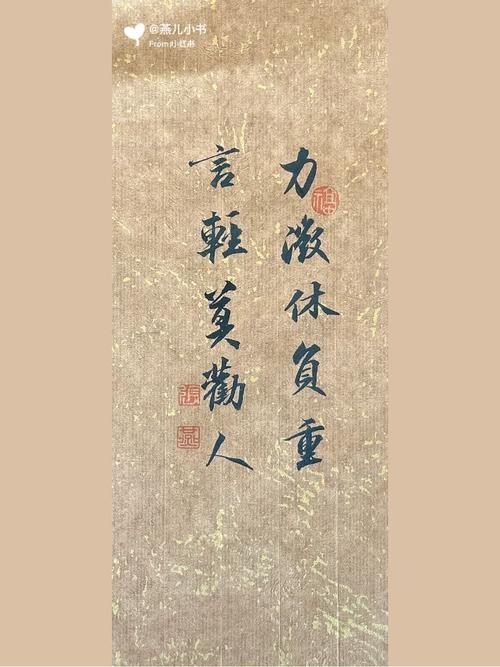 @燕儿小书
From 小红书
力微休負重
言輕莫勸人
張
燕